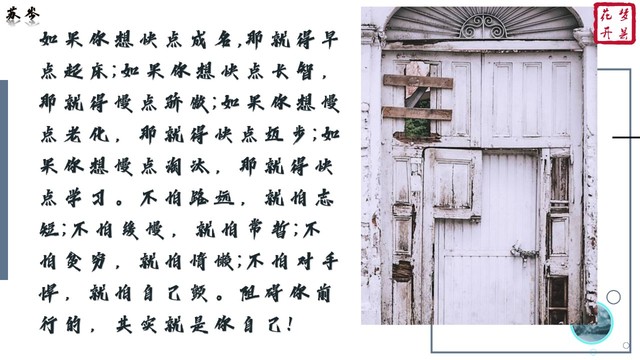 苏岑
如果你想快点成名,那就得早
点起床;如果你想快点长智,
那就得慢点骄傲;如果你想慢
点老化,那就得快点迈步;如
果你想慢点淘汰,那就得快
点学习。不怕路远,就怕志
短;不怕缓慢,就怕常暂;不
怕贫穷,就怕惰懒;不怕对手
悍,就怕自己颤。阻碍你前
行的,其实就是你自己!
花开
梦县